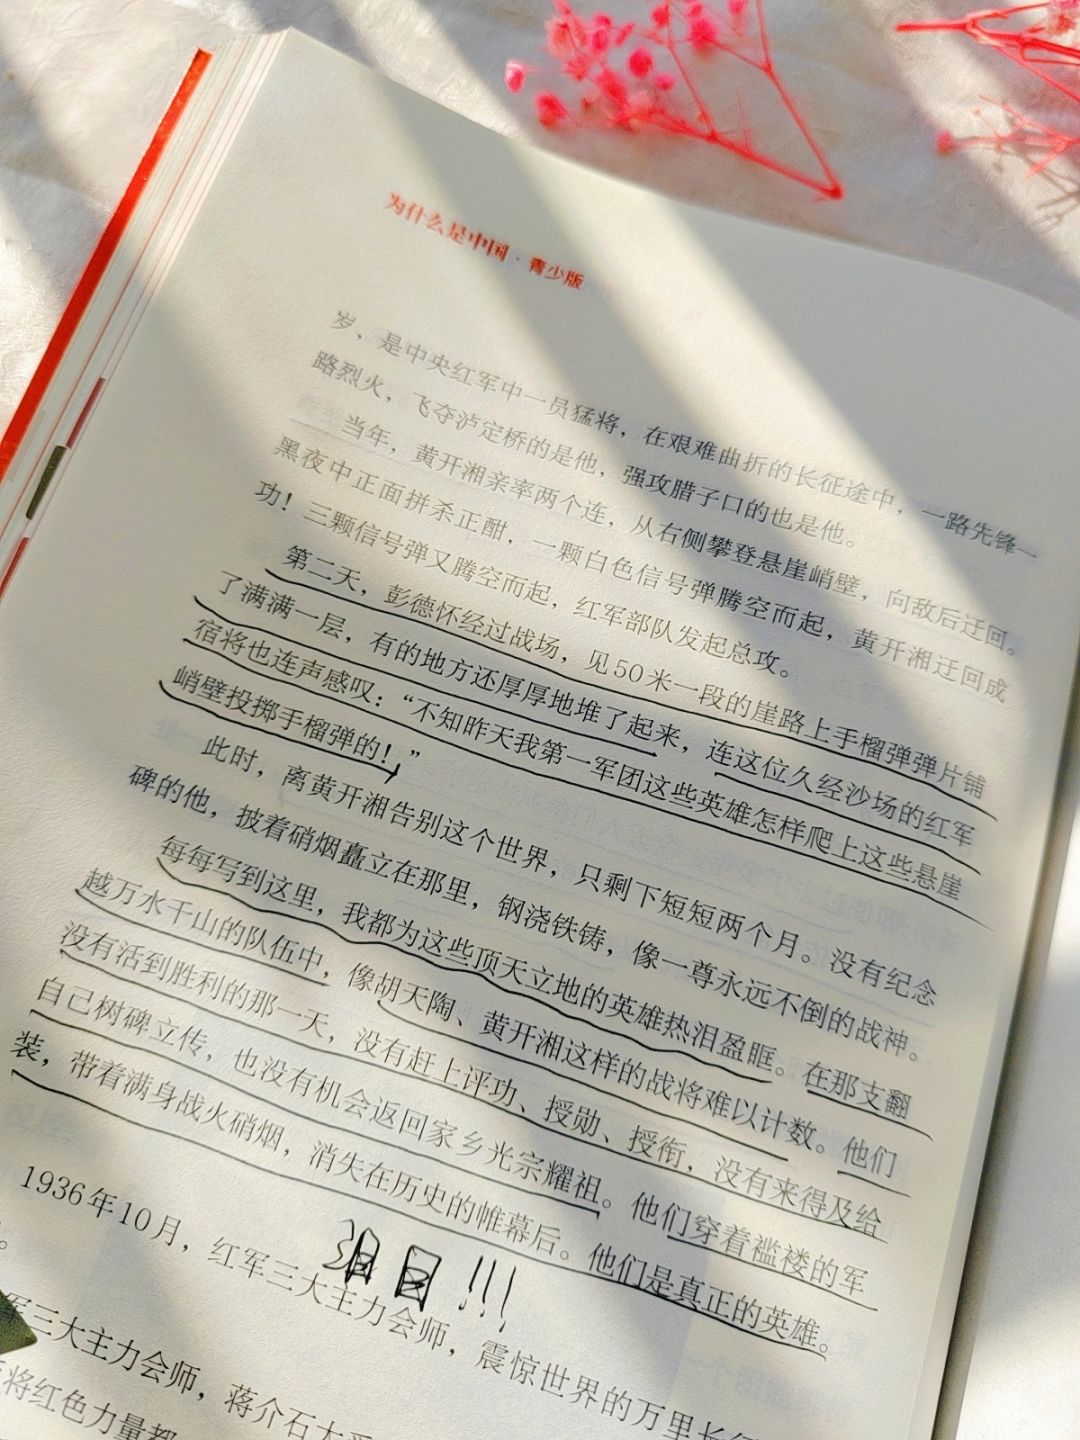 为什么是中国·青少版
岁，是中央红军中一员猛将，在艰难曲折的长征途中，一路先锋一
路烈火，飞夺泸定桥的是他，强攻腊子口的也是他。
当年，黄开湘亲率两个连，从右侧攀登悬崖峭壁，向敌后迂回。
黑夜中正面拼杀正酣，一颗白色信号弹腾空而起，黄开湘迂回成
功！三颗信号弹又腾空而起，红军部队发起总攻。
第二天，彭德怀经过战场，见50米一段的崖路上手榴弹弹片铺
了满满一层，有的地方还厚厚地堆了起来，连这位久经沙场的红军
宿将也连声感叹：“不知昨天我第一军团这些英雄怎样爬上这些悬崖
峭壁投掷手榴弹的！”
此时，离黄开湘告别这个世界，只剩下短短两个月。没有纪念
碑的他，披着硝烟矗立在那里，钢浇铁铸，像一尊永远不倒的战神。
每每写到这里，我都为这些顶天立地的英雄热泪盈眶。在那支翻
越万水千山的队伍中，像胡天陶、黄开湘这样的战将难以计数。他们
没有活到胜利的那一天，没有赶上评功、授勋、授衔，没有来得及给
自己树碑立传，也没有机会返回家乡光宗耀祖。他们穿着褴褛的军
装，带着满身战火硝烟，消失在历史的帷幕后。他们是真正的英雄。
泪目!!!
1936年10月，红军三大主力会师，震惊世界的万里长征
军三大主力会师，蒋介石大
将红色力量都